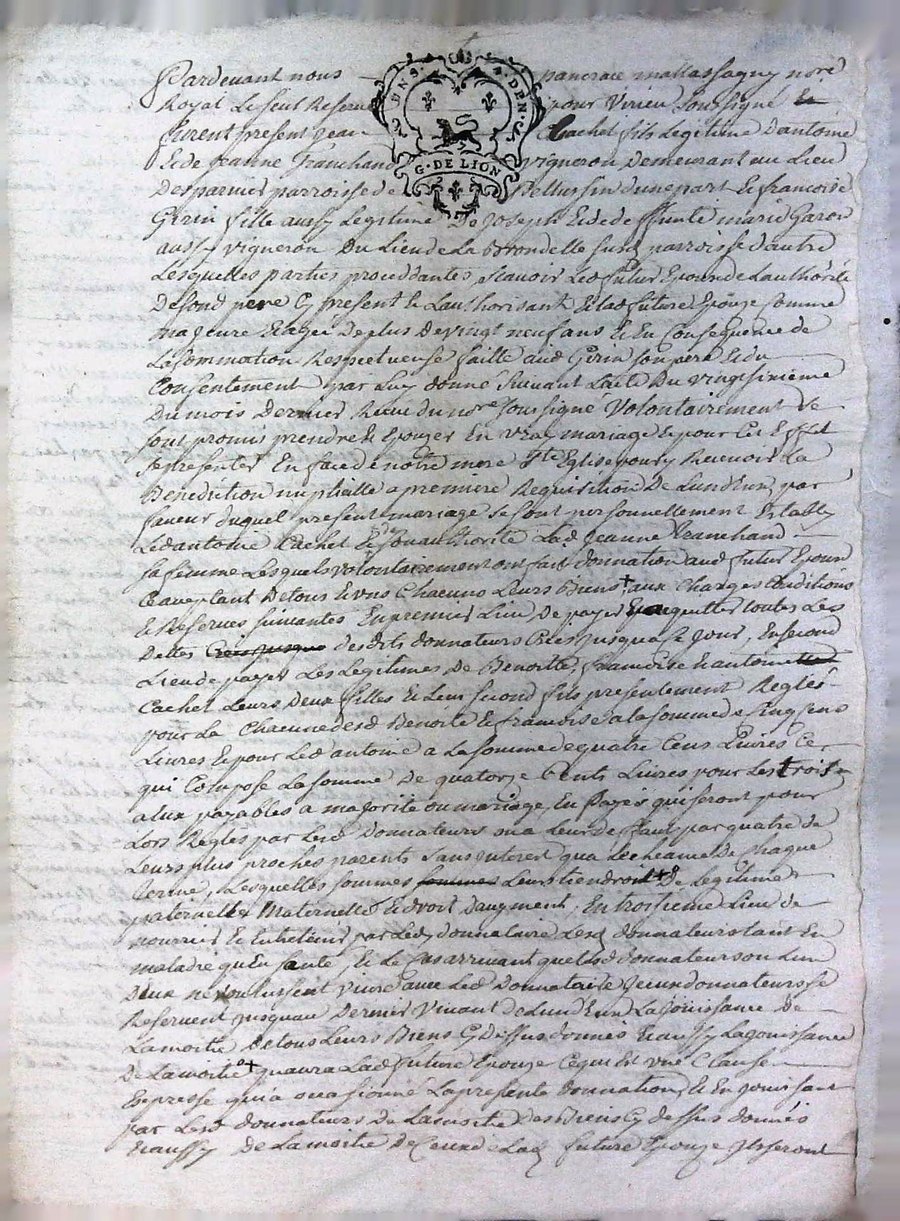 Pardevant nous pancrace mallassagny nore
Royal Le seul Reservé pour virieu soussigné
furent presents jean Cachet fils Legitime d'antoine
Et de jeanne franchand vigneron demeurant au Lieu
Desparmier parroisse de Pellussin d'une part Et francoise
Girin fille aussy Legitime De joseph Et de deffunte marie Garon
aussy vigneron Du Lieu de La susd parroisse d'autre
Lesquelles parties proceddantes, scavoir Led futur Epoux de L'authôrité
De sond pere Cy present Et L'authorisant Et Lad future Epouze comme
majeure Etagée De plus De vingt neuf ans Et En Consequence de
La sommation Respectueuse faitte aud Girin son pere Et du
Consentement par Luy donné suivant L'acte Du vingt sixieme
Du mois Dernier, Recu du nore soussigné Volontairement se
sont promis prendre Et Epouzer En vray mariage Et pour Cet Effet
se presenter En face de notre mere Ste Eglise pour y Recevoir La
Benediction nuptialle a premiere Requisition De L'un d'Eux, par
faveur duquel present mariage se sont personnellement Etably
Led antoine Cachet Et de son authorité Lad jeanne franchand
sa femme Lesquels volontairement ont fait donnation aud futur Epoux
acceptant De tous Et uns Chacuns Leurs Biens + aux Charges Conditions
Et Reserves suivantes En premier Lieu De payer Et acquitter toutes Les
Dettes desdits donnateurs Crées jusqu'a ce jour, En second
Lieu de payer Les Legitimes De Benoitte, francoise Et antoine
Cachet Leurs Deux filles Et Leur second fils presentement Reglés
pour La Chacune desd Benoite Et francoise a La somme de Cinq Cens
Livres Et pour Led antoine a La somme de quatre Cens Livres Ce
qui Compose La somme De quatorze Cents Livres pour Les trois
a Eux payables a majorité ou mariage, En Payes qui seront pour
Lors Reglés par Lesd Donnateurs ou a Leur deffaut par quatre de
Leurs plus proches parents sans interet qu'a L'echeance De chaque
terme, Lesquelles sommes Leur tiendront + De Legitime
paternelle & Maternelle & droit d'augment; En troisieme Lieu de
nourrir Et Entretenir par Led donnataire Lesd donnateurs tant En
maladie qu'En santé, Et Le Cas arrivant que Lesd donnateurs ou L'un
Deux ne voulussent vivre avec Led Donnataire Iceux donnateurs se
Reservent jusqu'au Dernier Vivant de L'un d'Eux La jouissance De
La moitié De tous Leurs Biens Cy Dessus donnés Et aussy La jouissance
De La moitié + qu'aura Lad future Epouze Ce qui Est une Clause
Expresse qui a occasionné La presente donnation, Et En jouissant
par Lesd donnateurs De La moitié des Biens Cy dessus donnés
Et aussy De La moitié De Ceux de Lad future Epouze ils seront
UN S DEN
G DE LION